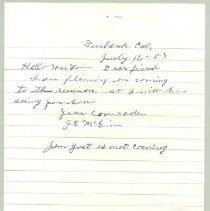 Burbank Cal,
July 12-53
Hello Dear friend
I am planing on coming
to this reunion so I will be
seing you soon
Your Comrade
J E McGinn
Jon Yost is not coming